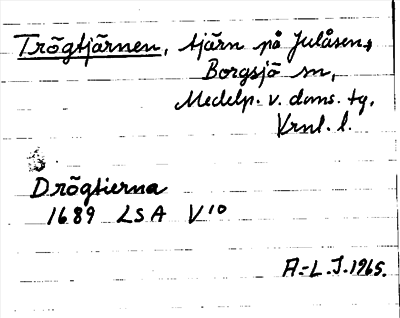 Trögtjärnen, tjärn på Julåsen,
Borgsjö sn,
Medelp. v. doms. tg,
Vrnl. l.
Drögtierna
1689 LSA V10
A.-L. J. 1965.